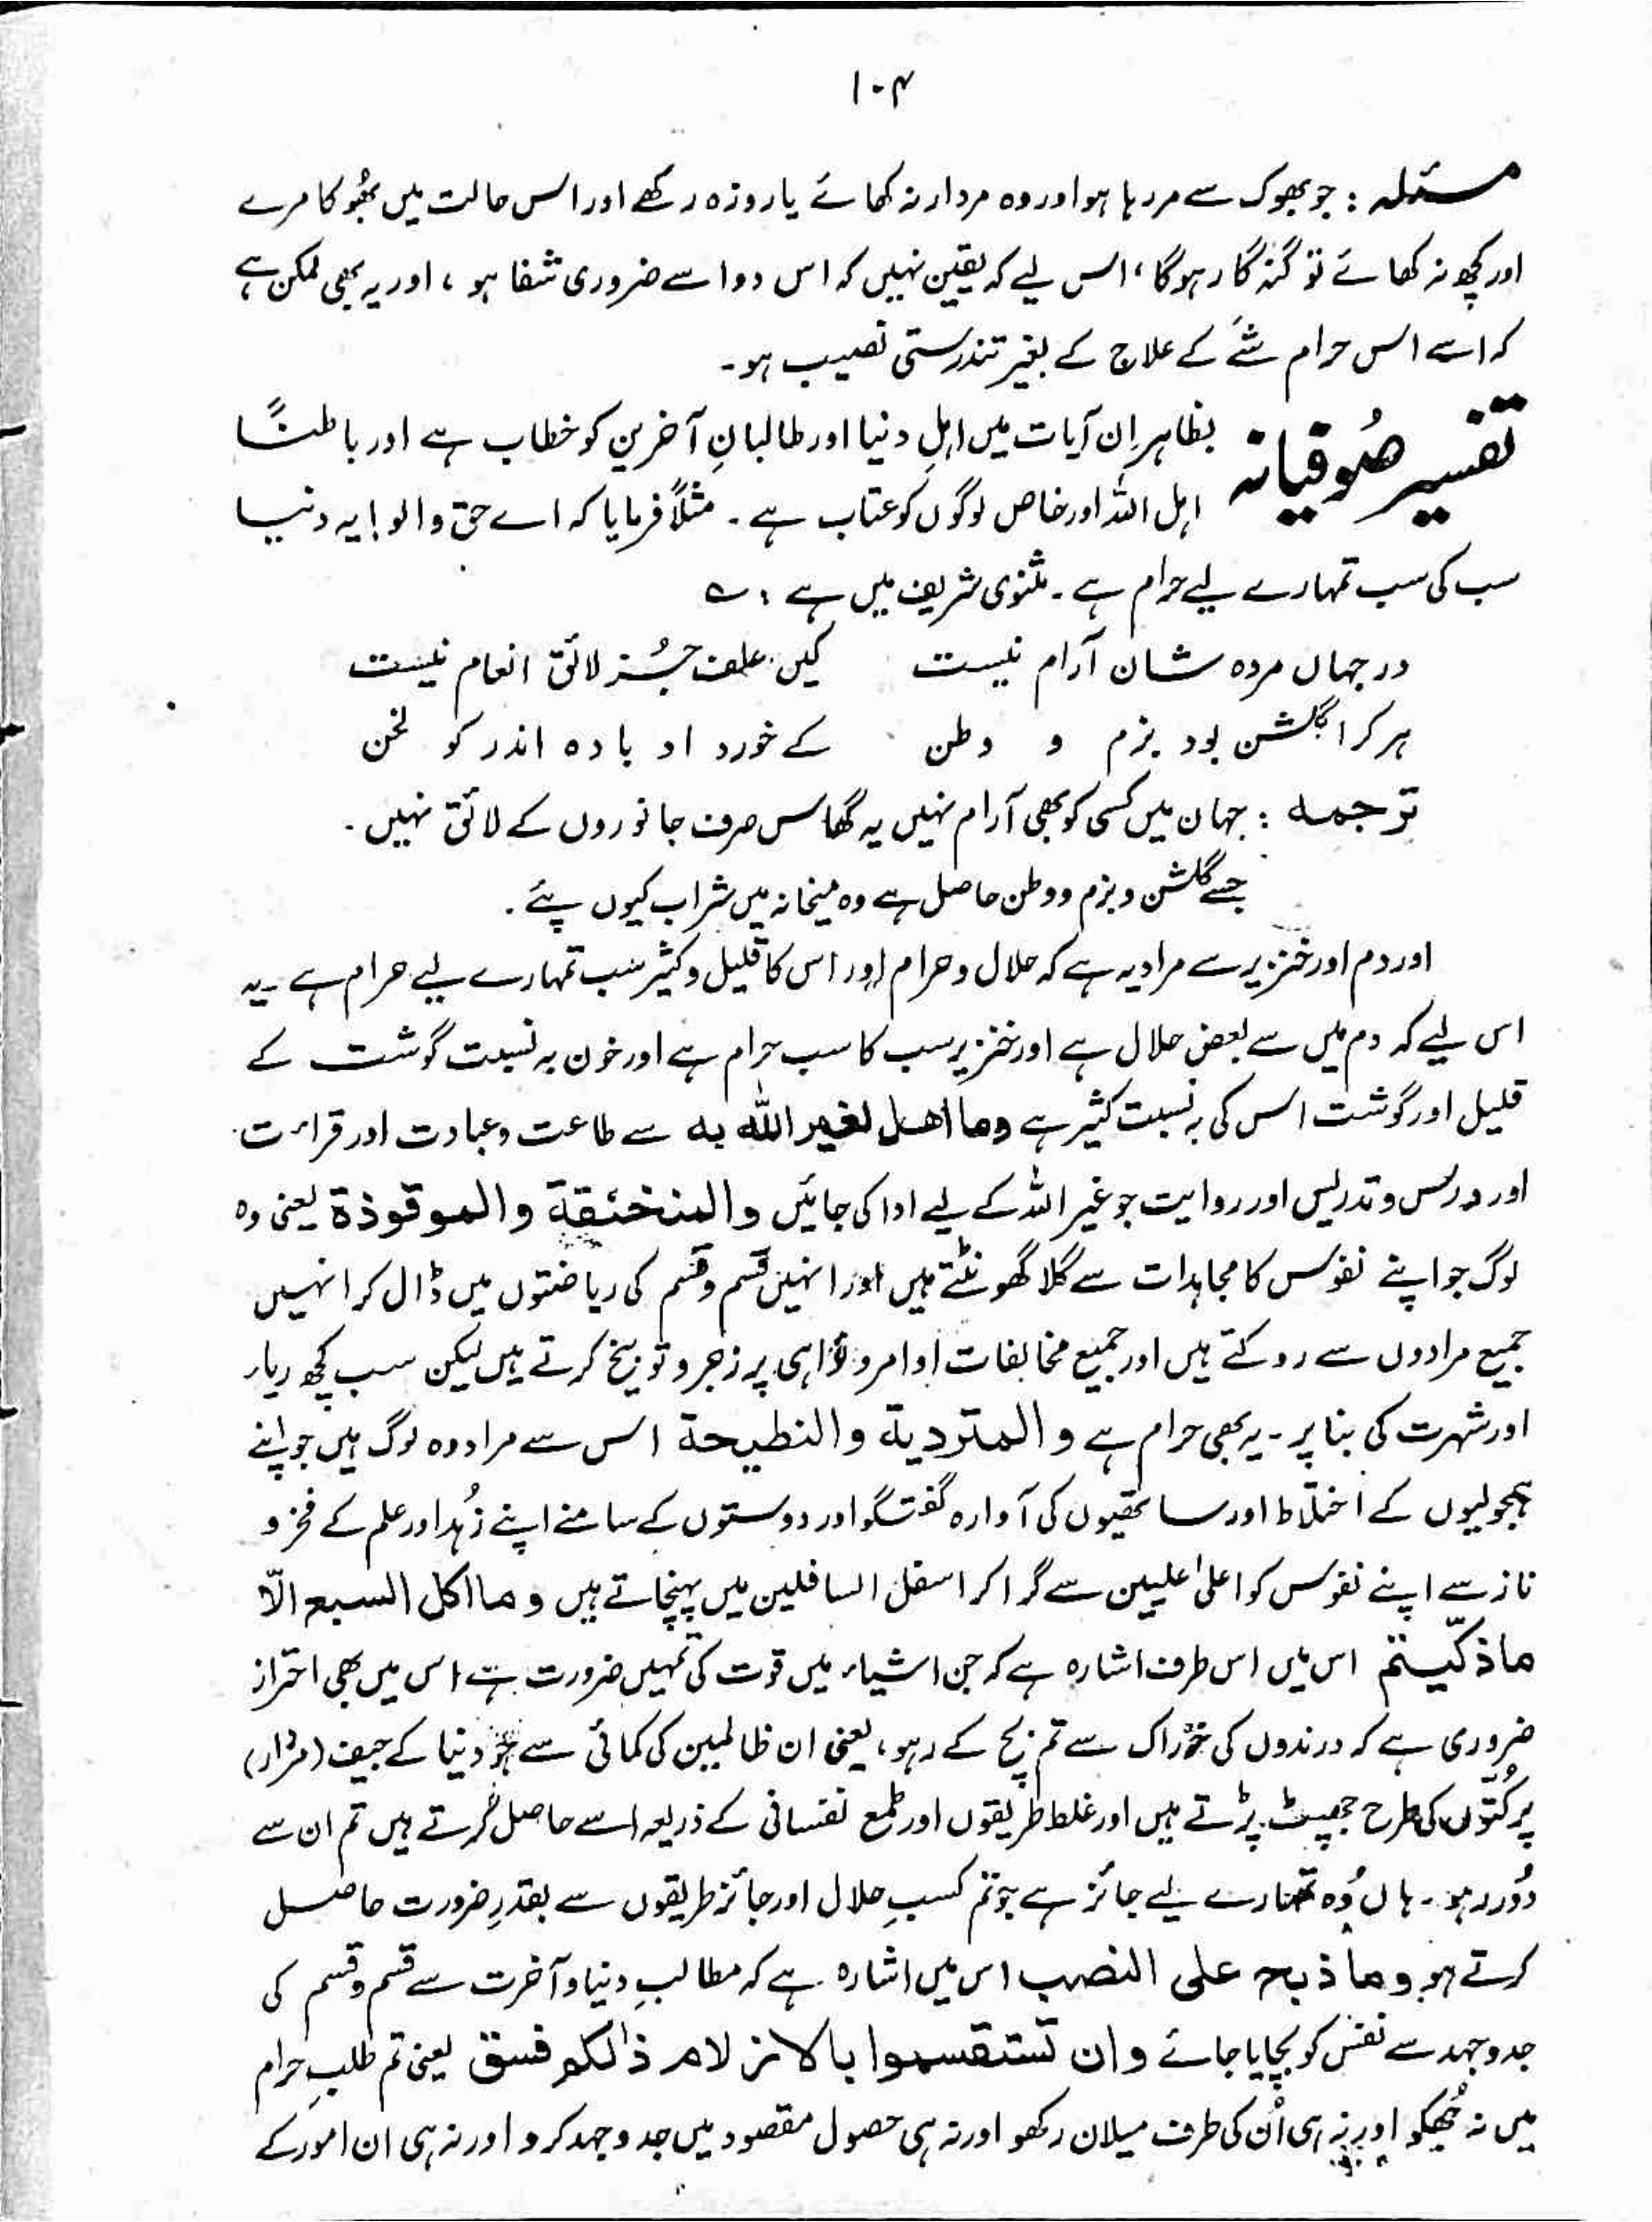 ۱۰۴
مسئلہ : جو بھوک سے مر رہا ہو اور وہ مردار نہ کھائے یا روزہ رکھے اور اس حالت میں بھُوکا مرے
اور کچھ نہ کھائے تو گنہگار ہوگا، اس لیے کہ یقین نہیں کہ اس دوا سے ضروری شفا ہو ، اور یہ بھی ممکن ہے
کہ اسے اس حرام شَے کے علاج کے بغیر تندرستی نصیب ہو۔
تفسیر صُوفیانہ بظاہر اِن آیات میں اہلِ دنیا اور طالبانِ آخرین کو خطاب ہے اور باطناً
اہل اللہ اور خاص لوگوں کو عتاب ہے ۔ مثلاً فرمایا کہ اے حق والو! یہ دنیا
سب کی سب تمہارے لیے حرام ہے ۔ مثنوی شریف میں ہے : ؎
در جہاں مردہ شان آرام نیست کیں علف جُز لائق انعام نیست
ہر کرا گلشن بود بزم و وطن کے خورد او بادہ اندر کو لخن
ترجمہ : جہان میں کسی کو بھی آرام نہیں یہ گھاس صرف جانوروں کے لائق نہیں ۔
جسے گلشن و بزم و وطن حاصل ہے وہ میخانہ میں شراب کیوں پئے ۔
اور دم اور خنزیر سے مراد یہ ہے کہ حلال و حرام اور اس کا قلیل و کثیر سب تمہارے لیے حرام ہے ۔ یہ
اس لیے کہ دم میں سے بعض حلال ہے اور خنزیر سب کا سب حرام ہے اور خون بہ نسبت گوشت کے
قلیل اور گوشت اس کی بہ نسبت کثیر ہے وما اھل لغیر اللہ بہ سے طاعت و عبادت اور قراءت
اور درس و تدریس اور روایت جو غیر اللہ کے لیے ادا کی جائیں والمنخنقة والموقوذة یعنی وہ
لوگ جو اپنے نفوس کا مجاہدات سے گلا گھونٹتے ہیں اور انہیں قسم و قسم کی ریاضتوں میں ڈال کر انہیں
جمیع مرادوں سے روکتے ہیں اور جمیع مخالفات اوامر و نواہی پر زجر و توبیخ کرتے ہیں لیکن سب کچھ ریاء
اور شہرت کی بنا پر ۔ یہ بھی حرام ہے والمتردیة والنطیحة اس سے مراد وہ لوگ ہیں جو اپنے
ہمجولیوں کے اختلاط اور ساتھیوں کی آوارہ گفتگو اور دوستوں کے سامنے اپنے زُہد اور علم کے فخر و
ناز سے اپنے نفوس کو اعلیٰ علیین سے گرا کر اسفل السافلین میں پہنچاتے ہیں وما اکل السبع الّا
ماذکّیتم اس میں اس طرف اشارہ ہے کہ جن اشیاء میں قوت کی تمہیں ضرورت ہے اس میں بھی احتراز
ضروری ہے کہ درندوں کی خوراک سے تم بچ کے رہو، یعنی ان ظالمین کی کمائی سے جو دنیا کے جیف (مردار)
پر کُتّوں کی طرح جھپٹ پڑتے ہیں اور غلط طریقوں اور طمع نفسانی کے ذریعہ اسے حاصل کرتے ہیں تم ان سے
دُور رہو ۔ ہاں وُہ تمھارے لیے جائز ہے جو تم کسبِ حلال اور جائز طریقوں سے بقدرِ ضرورت حاصل
کرتے ہو وما ذبح علی النصب اس میں اشارہ ہے کہ مطالبِ دنیا و آخرت سے قسم و قسم کی
جدوجہد سے نفس کو بچایا جائے وان تستقسموا بالازلام ذالکم فسق یعنی تم طلبِ حرام
میں نہ جُھکو اور نہ ہی اُن کی طرف میلان رکھو اور نہ ہی حصول مقصود میں جدوجہد کرو اور نہ ہی ان امور کے